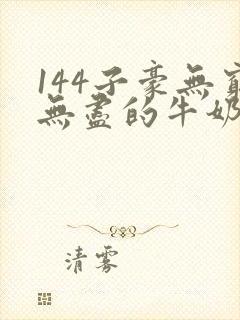 144子豪無窮
無盡的牛奶
清雾